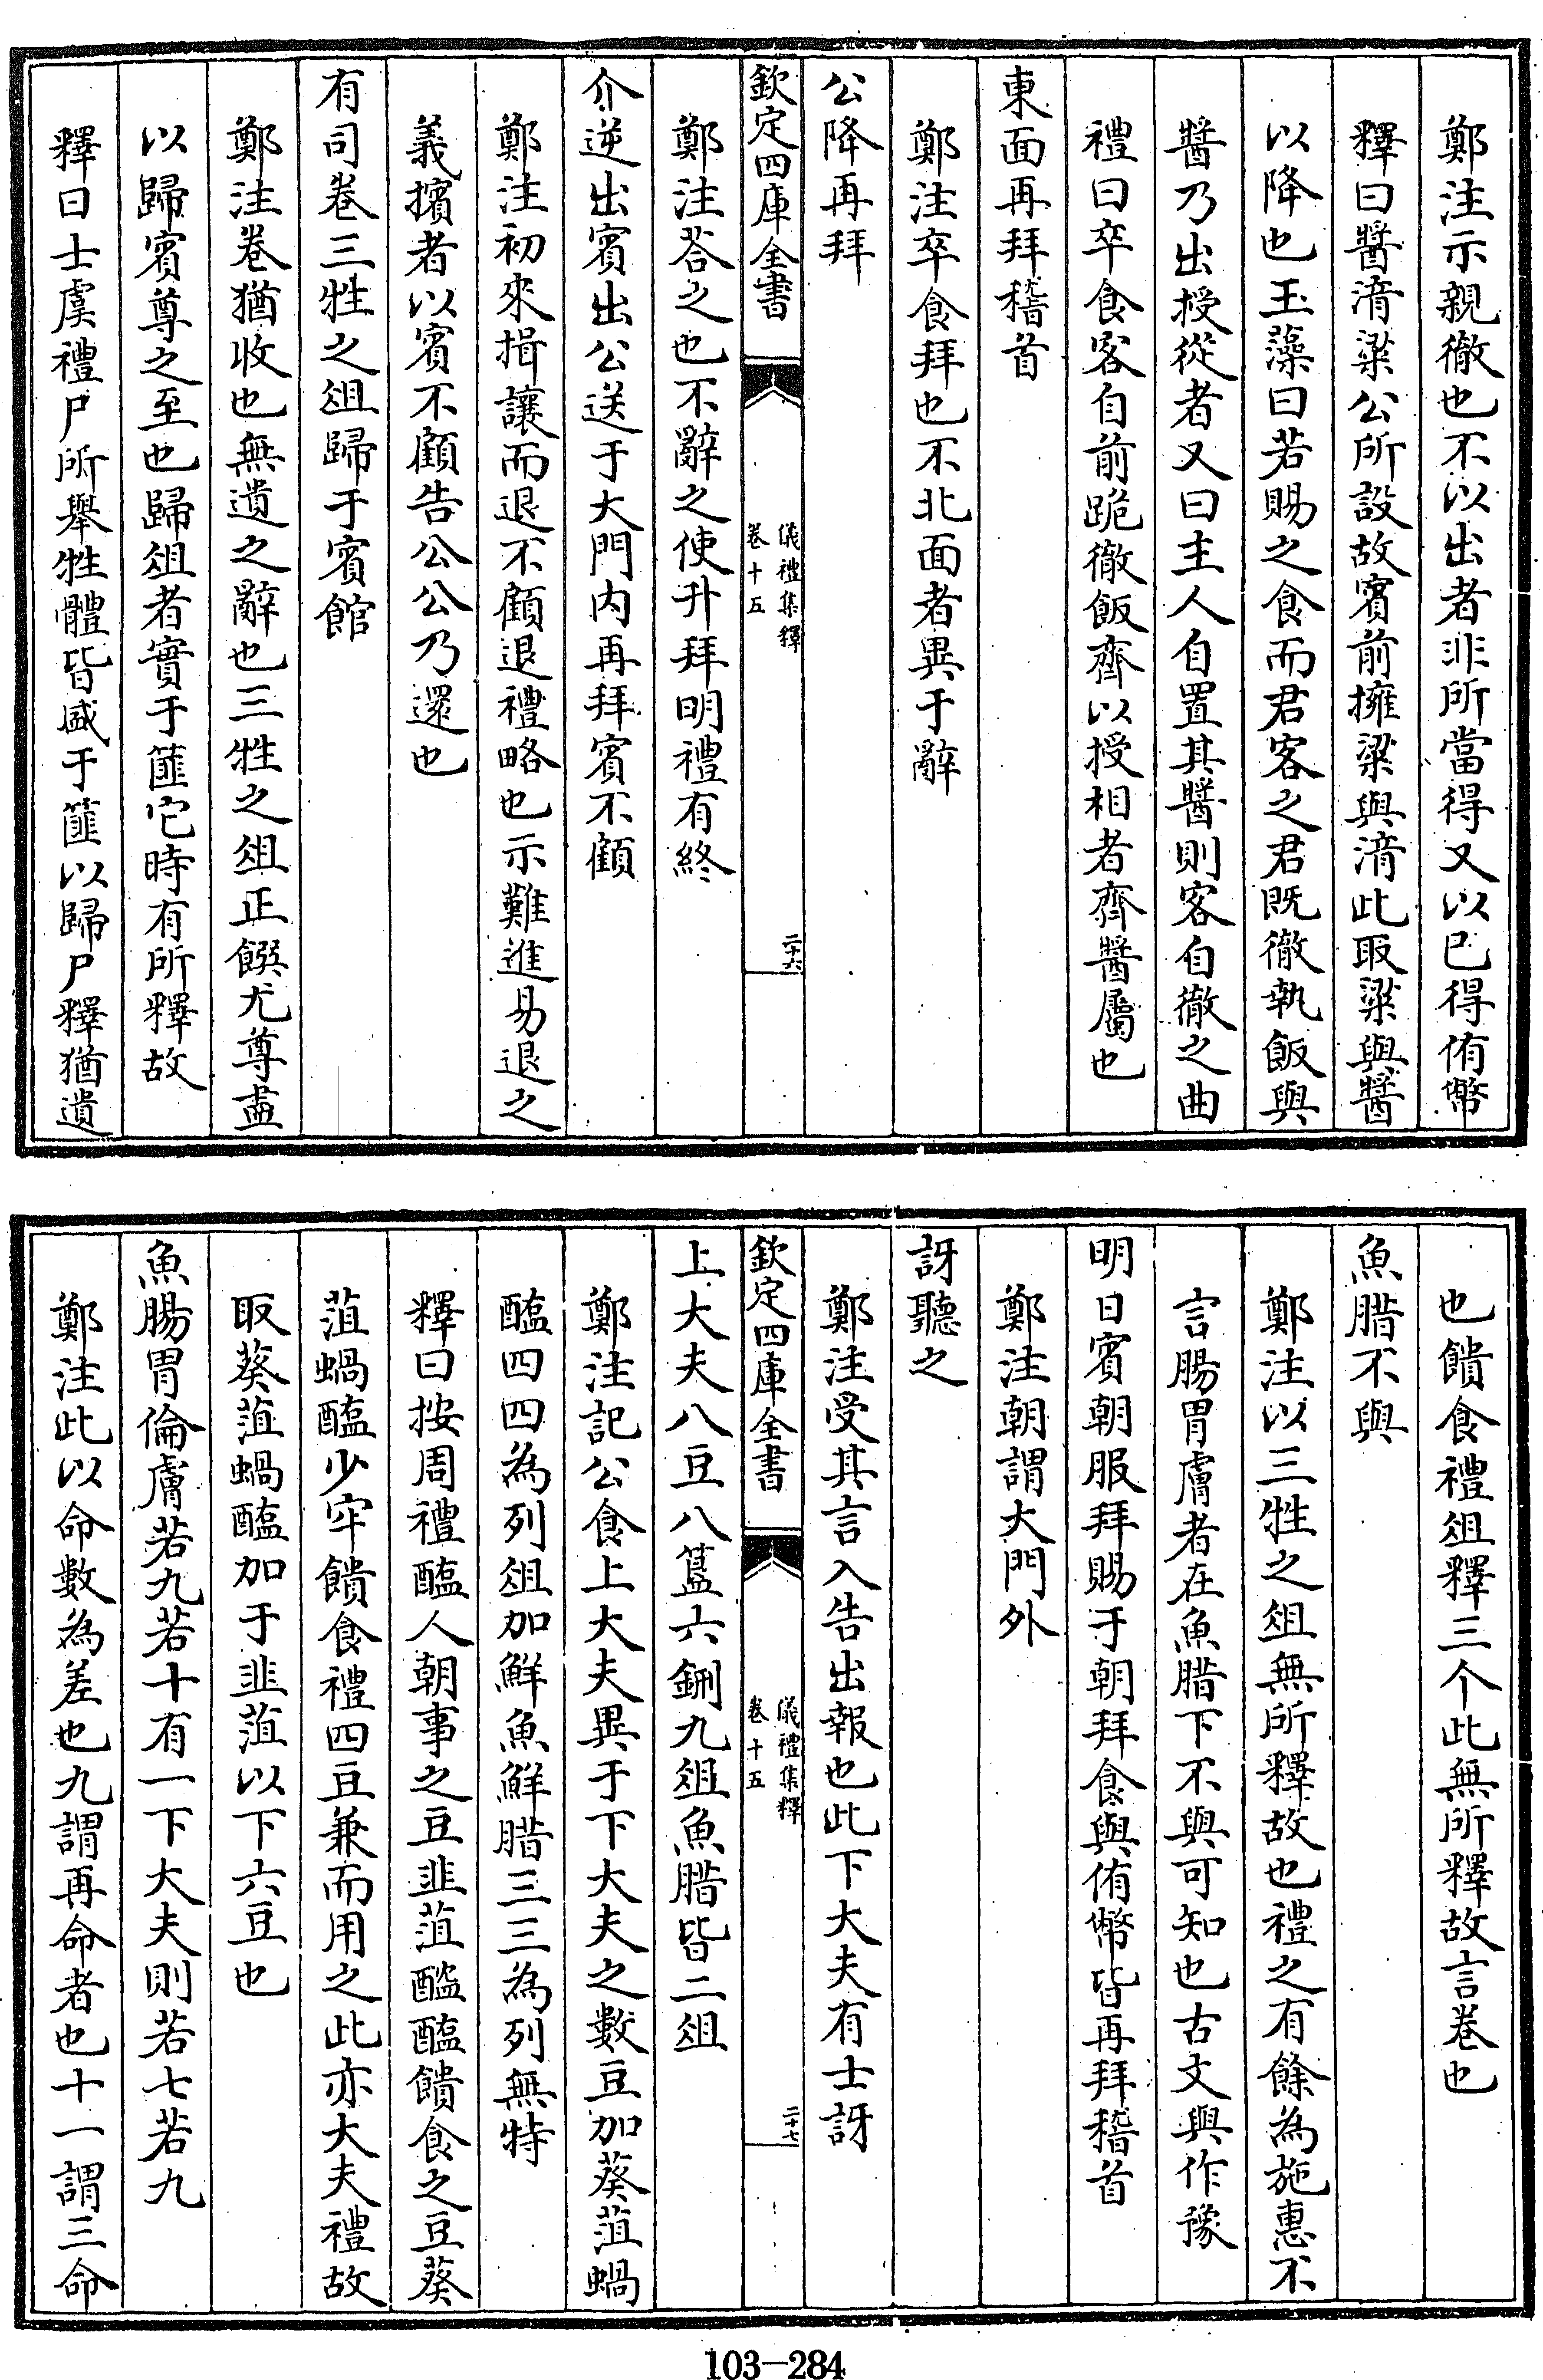 鄭注示親徹也不以出者非所當得又以已得侑幣
釋曰醬湇粱公所設故賓前擁粱與湇此取粱與醬
以降也玉藻曰若賜之食而君客之君既徹執飯與
醬乃出授從者又曰主人自置其醬則客自徹之曲
禮曰卒食客自前跪徹飯齊以授相者齊醬屬也
東面再拜稽首
鄭注卒食拜也不北面者異于辭
公降再拜
欽定四庫全書
儀禮集釋
卷十五
二十六
鄭注荅之也不辭之使升拜明禮有終
介逆出賓出公送于大門内再拜賓不顧
鄭注初來揖讓而退不顧退禮略也示難進易退之
義擯者以賓不顧告公公乃還也
有司卷三牲之俎歸于賓館
鄭注卷猶收也無遺之辭也三牲之俎正饌尤尊盡
以歸賓尊之至也歸俎者實于篚它時有所釋故
釋曰士虞禮尸所舉牲體皆盛于篚以歸尸釋猶遺
也饋食禮俎釋三个此無所釋故言卷也
魚腊不與
鄭注以三牲之俎無所釋故也禮之有餘為施惠不
言腸胃膚者在魚腊下不與可知也古文與作豫
明日賓朝服拜賜于朝拜食與侑幣皆再拜稽首
鄭注朝謂大門外
訝聽之
鄭注受其言入告出報也此下大夫有士訝
欽定四庫全書
儀禮集釋
卷十五
二十七
上大夫八豆八簋六鉶九俎魚腊皆二俎
鄭注記公食上大夫異于下大夫之數豆加葵菹蝸
醢四四為列俎加鮮魚鮮腊三三為列無特
釋曰按周禮醢人朝事之豆韭菹醓醢饋食之豆葵
菹蝸醢少牢饋食禮四豆兼而用之此亦大夫禮故
取葵菹蝸醢加于韭菹以下六豆也
魚腸胃倫膚若九若十有一下大夫則若七若九
鄭注此以命數為差也九謂再命者也十一謂三命
103-284